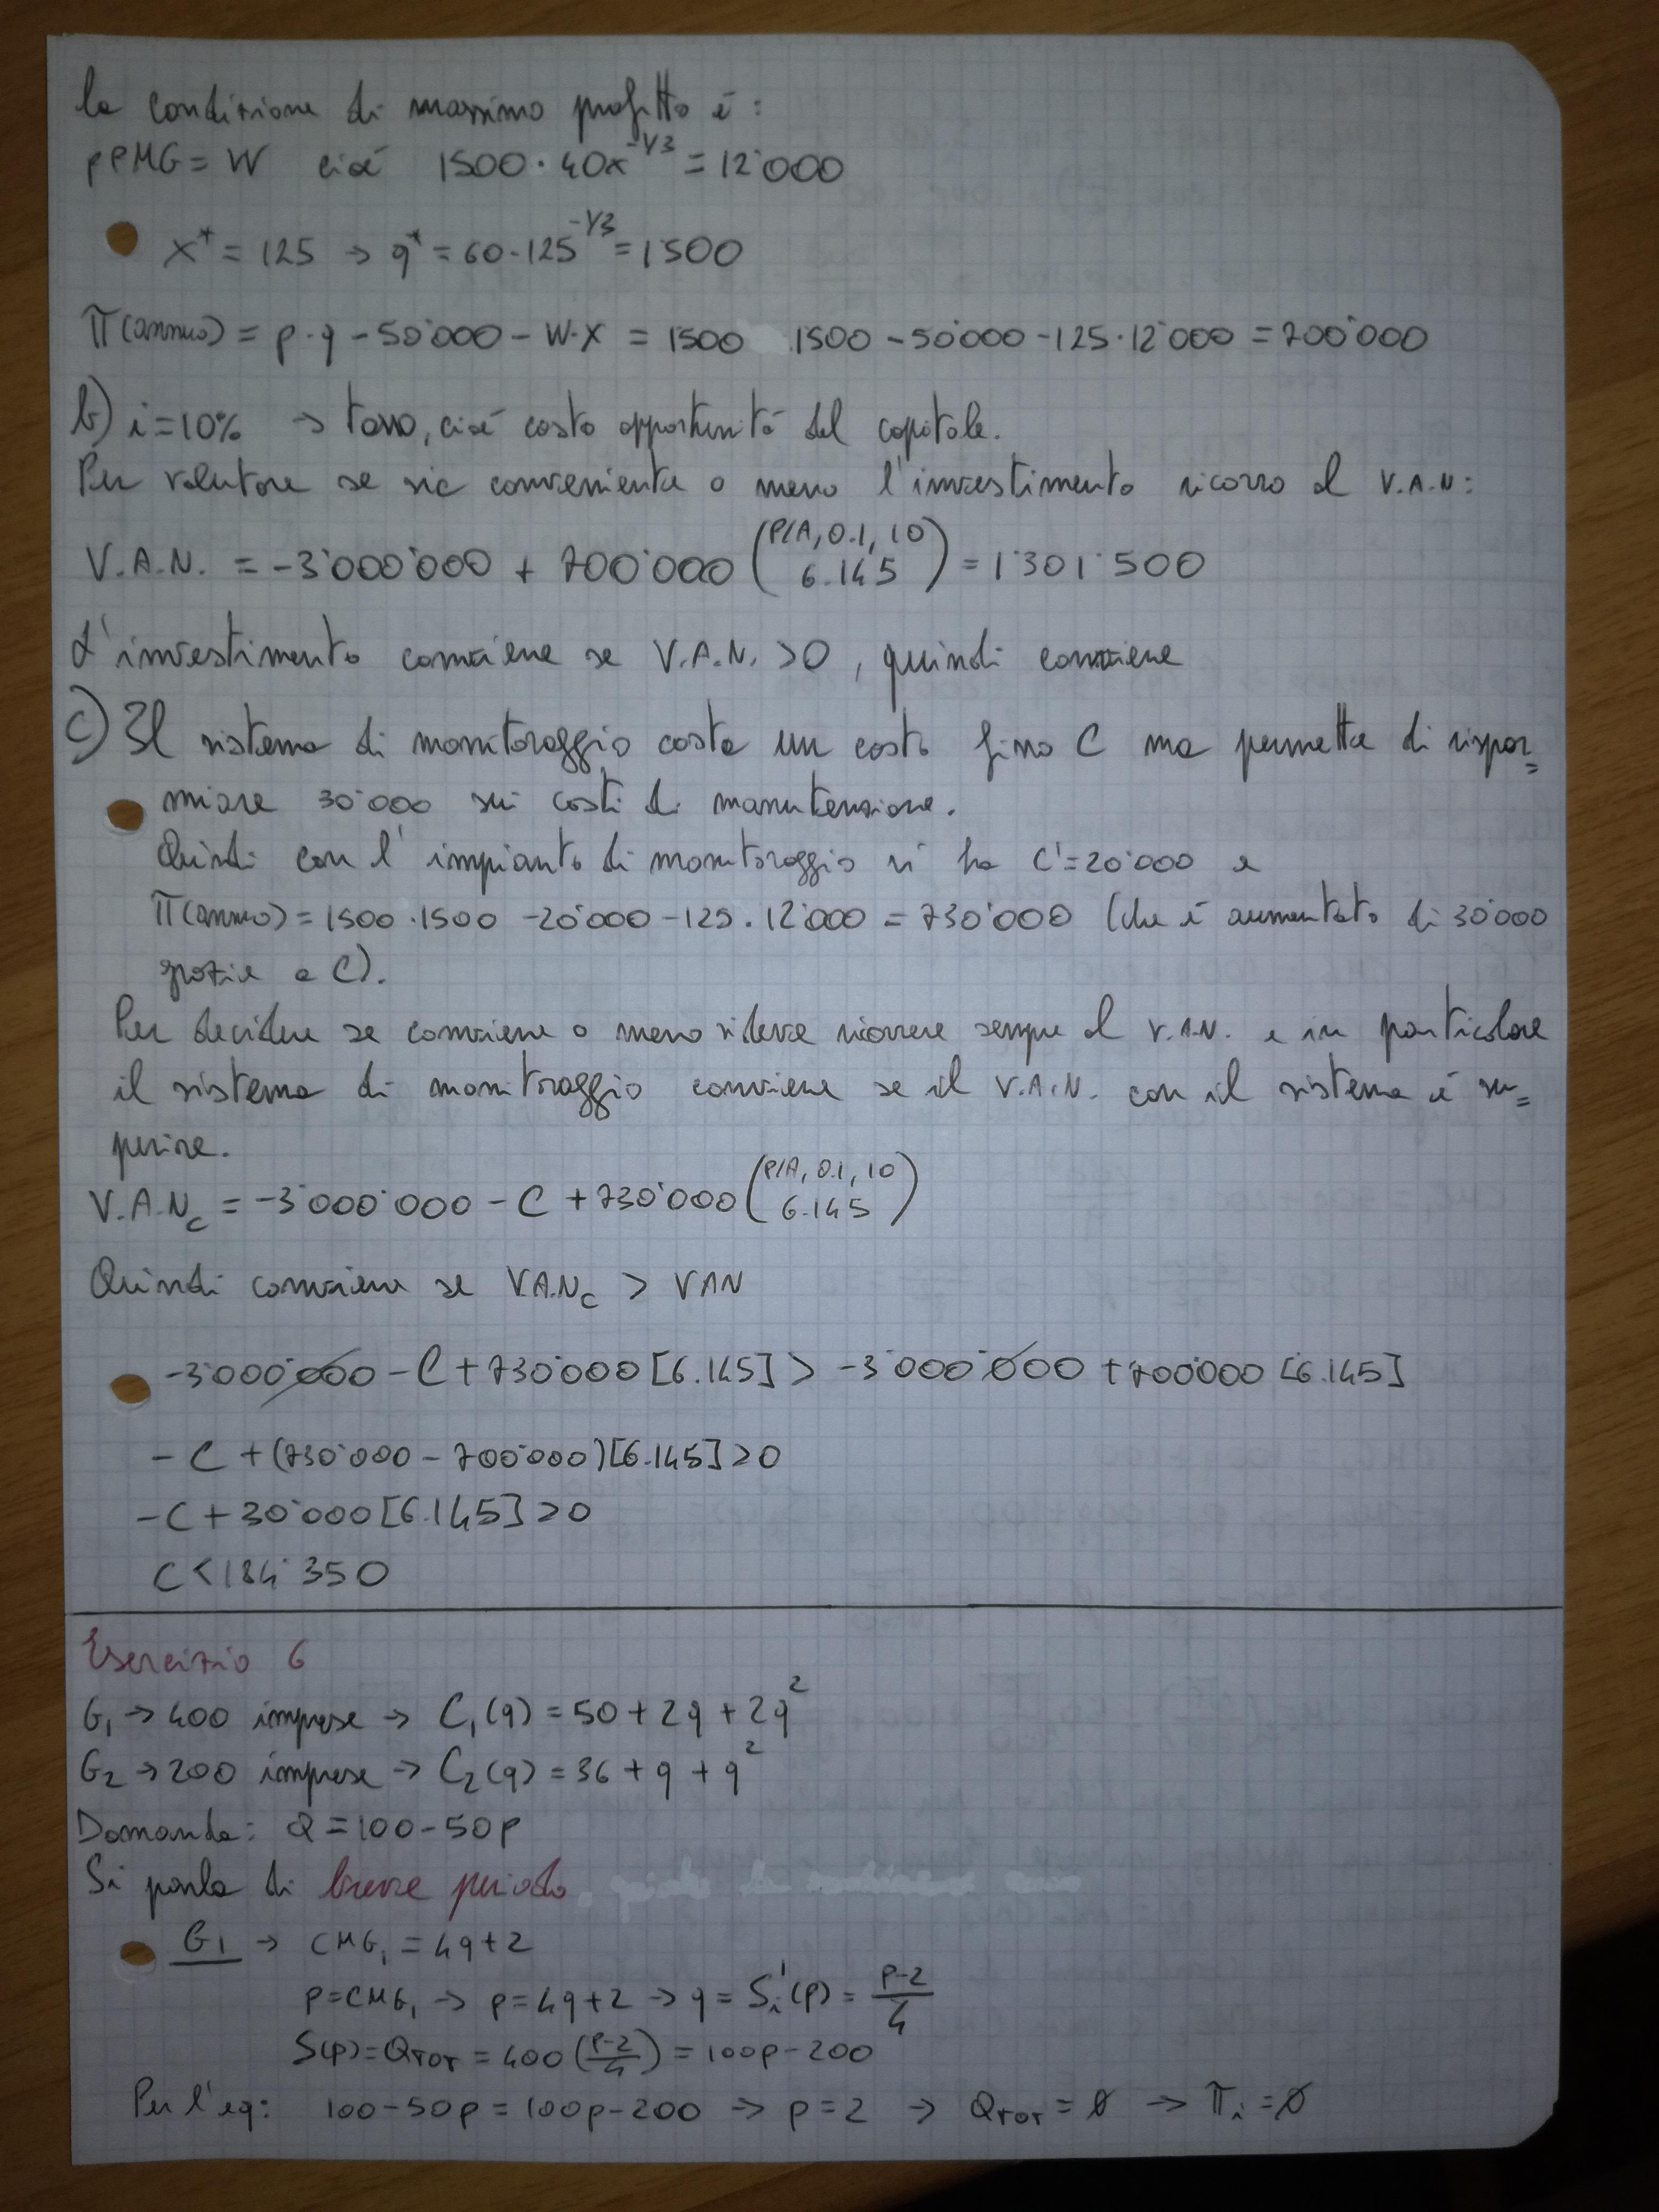 La condizione di massimo profitto è:
PPMG = W cioè 1500·40x^-1/3 = 12'000
x* = 125 → q* = 60·125^-1/3 = 1500
π(annuo) = p·q - 50'000 - w·x = 1500·1500 - 50'000 - 125·12'000 = 700'000
b) i=10% → tasso, cioè costo opportunità del capitale.
Per valutare se sia conveniente o meno l'investimento ricorro al V.A.N.:
V.A.N. = -3'000'000 + 700'000 (P/A, 0.1, 10 6.145) = 1'301'500
L'investimento conviene se V.A.N. > 0, quindi conviene
c) Il sistema di monitoraggio costa un costo fino C ma permette di rispar=
miare 30'000 sui costi di manutenzione.
Quindi con l'impianto di monitoraggio si ha C'=20'000 e
π(annuo) = 1500·1500 - 20'000 - 125·12'000 = 730'000 (che è aumentato di 30'000
grazie a C).
Per decidere se conviene o meno si deve ricorrere sempre al V.A.N. e in particolare
il sistema di monitoraggio conviene se il V.A.N. con il sistema è su=
periore.
V.A.N.c = -3'000'000 - C + 730'000 (P/A, 0.1, 10 6.145)
Quindi conviene se V.A.N.c > VAN
-3'000'000 - C + 730'000[6.145] > -3'000'000 + 700'000[6.145]
-C + (730'000 - 700'000)[6.145] > 0
-C + 30'000[6.145] > 0
C < 184'350
Esercizio 6
G1 → 400 imprese → C1(q) = 50 + 2q + 2q²
G2 → 200 imprese → C2(q) = 36 + q + q²
Domanda: Q = 100 - 50p
Si parla di breve periodo.
G1 → CMG1 = 4q + 2
p = CMG1 → p = 4q + 2 → q = Si'(p) = p-2/4
S(p) = QTOT = 400(p-2/4) = 100p - 200
Per l'eq: 100 - 50p = 100p - 200 → p = 2 → QTOT = ∅ → πi = ∅